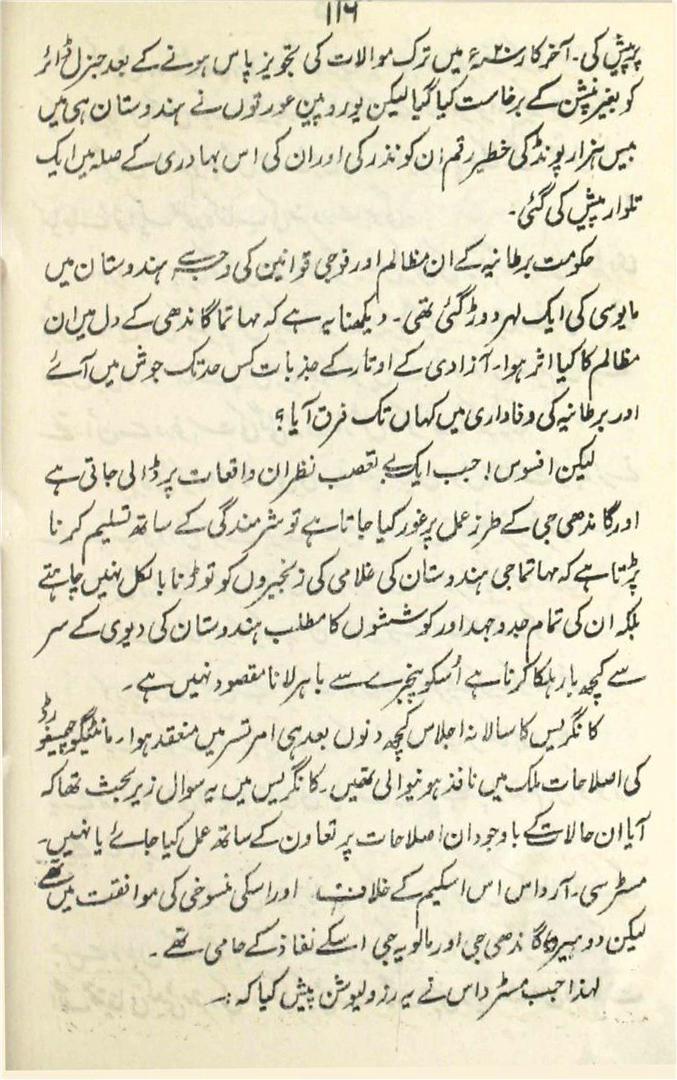 ۱۱۶
پر پیش کی۔ آخر کار ۲۰ء میں ترک موالات کی تجویز پاس ہونے کے بعد جنرل ڈائر
کو بغیر پنشن کے برخاست کیا گیا لیکن یوروپین عورتوں نے ہندوستان ہی میں
بیس ہزار پونڈ کی خطیر رقم ان کو نذر کی اور ان کی اس بہادری کے صلہ میں ایک
تلوار پیش کی گئی۔
حکومت برطانیہ کے ان مظالم اور فوجی قوانین کی وجہ سے ہندوستان میں
مایوسی کی ایک لہر دوڑ گئی تھی۔ دیکھنا یہ ہے کہ مہاتما گاندھی کے دل میں ان
مظالم کا کیا اثر ہوا۔ آزادی کے اوتار کے جذبات کس حد تک جوش میں آئے
اور برطانیہ کی وفاداری میں کہاں تک فرق آیا؟
لیکن افسوس! جب ایک بے تعصب نظر ان واقعات پر ڈالی جاتی ہے
اور گاندھی جی کے طرز عمل پر غور کیا جاتا ہے تو شرمندگی کے ساتھ تسلیم کرنا
پڑتا ہے کہ مہاتما جی ہندوستان کی غلامی کی زنجیروں کو توڑنا بالکل نہیں چاہتے
بلکہ ان کی تمام جدوجہد اور کوششوں کا مطلب ہندوستان کی دیوی کے سر
سے کچھ بار ہلکا کرنا ہے اُسکو پنجرے سے باہر لانا مقصود نہیں ہے۔
کانگریس کا سالانہ اجلاس کچھ دنوں بعد ہی امرتسر میں منعقد ہوا۔ مانٹیگو چیمسفورڈ
کی اصلاحات ملک میں نافذ ہونیوالی تھیں۔ کانگریس میں یہ سوال زیر بحث تھا کہ
آیا ان حالات کے باوجود ان اصلاحات پر تعاون کے ساتھ عمل کیا جائے یا نہیں۔
مسٹر سی۔ آر داس اس اسکیم کے خلاف اور اسکی منسوخی کی موافقت میں تھے
لیکن دوسری گاندھی جی اور مالویہ جی اسکے نفاذ کے حامی تھے۔
لہذا جب مسٹر داس نے یہ رزولیوشن پیش کیا کہ:۔